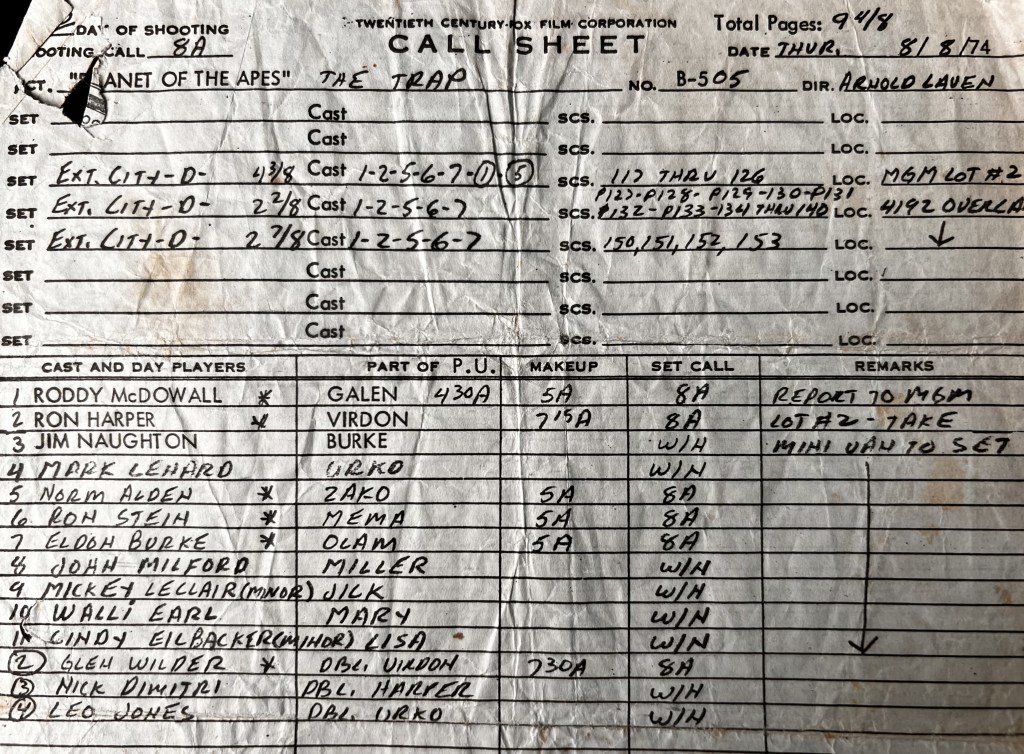 DAY OF SHOOTING TWENTIETH CENTURY-FOX FILM CORPORATION Total Pages: 9 4/8
OOTING CALL 8A CALL SHEET DATE THUR. 8/8/74
CT. "PLANET OF THE APES" THE TRAP NO. B-505 DIR. ARNOLD LAVEN
SET Cast SCS. LOC.
SET Cast SCS. LOC.
SET EXT. CITY-D- 4 3/8 Cast 1-2-5-6-7-① ⑤ SCS. 117 THRU 126 LOC. MGM LOT #2
P127-P128-P129-130-P131
SET EXT. CITY-D- 2 2/8 Cast 1-2-5-6-7 SCS. P132-P133-134 THRU 140 LOC. 4192 OVERLA
SET EXT. CITY-D- 2 7/8 Cast 1-2-5-6-7 SCS. 150, 151, 152, 153 LOC. ↓
SET Cast SCS. LOC.
SET Cast SCS. LOC.
SET Cast SCS. LOC.
CAST AND DAY PLAYERS PART OF P.U. MAKEUP SET CALL REMARKS
1 RODDY McDOWALL * GALEN 430A 5A 8A REPORT TO MGM
2 RON HARPER * VIRDON 7 15A 8A LOT #2 - TAKE
3 JIM NAUGHTON BURKE W/N MINI VAN TO SET
4 MARK LENARD URKO W/N
5 NORM ALDEN * ZAKO 5A 8A
6 RON STEIN * MEMA 5A 8A
7 ELDON BURKE * OLAM 5A 8A
8 JOHN MILFORD MILLER W/N
9 MICKEY LECLAIR (MINOR) JICK W/N
10 WALLI EARL MARY W/N
11 CINDY EILBACKER (MINOR) LISA W/N
② GLEN WILDER * DBL. VIRDON 730A 8A
③ NICK DIMITRI DBL. HARPER W/N
④ LEO JONES DBL. URKO W/N